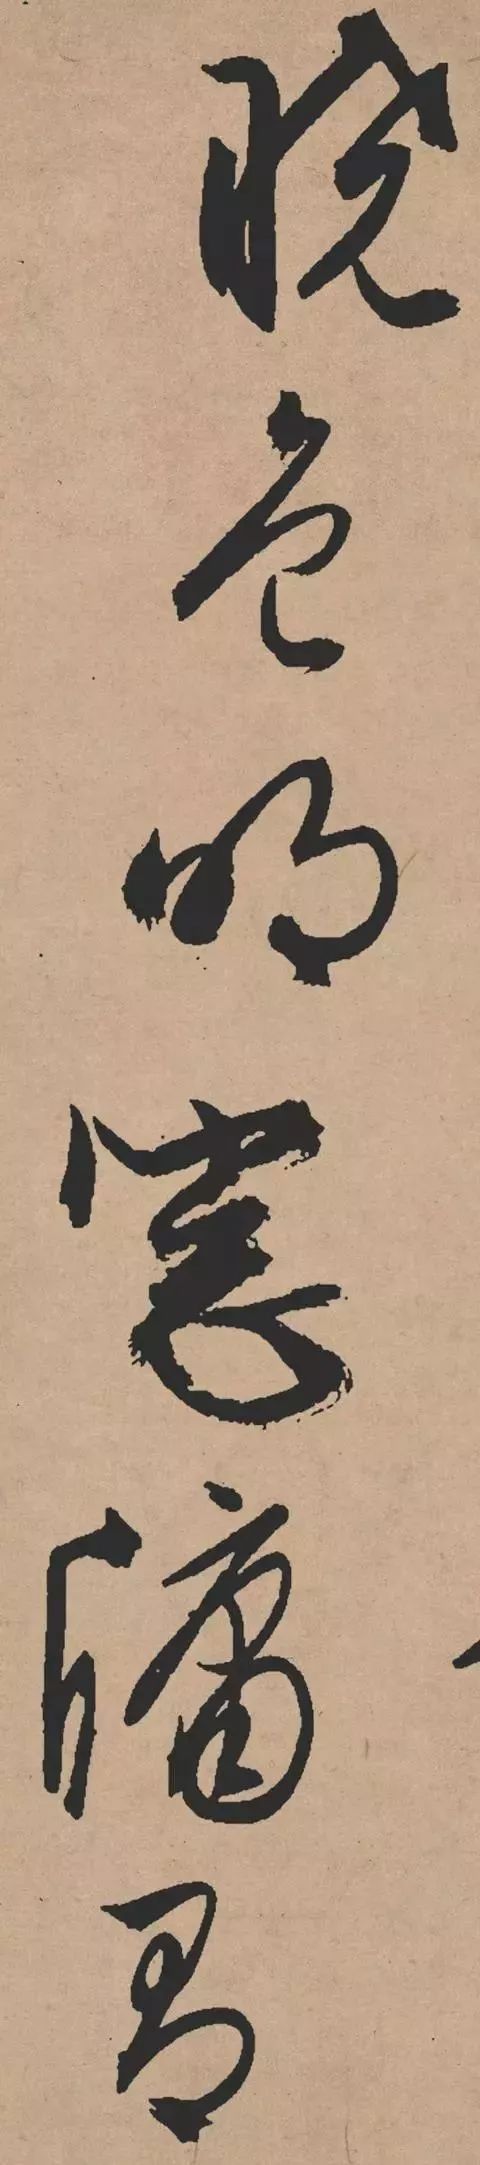 曉色明窗牖